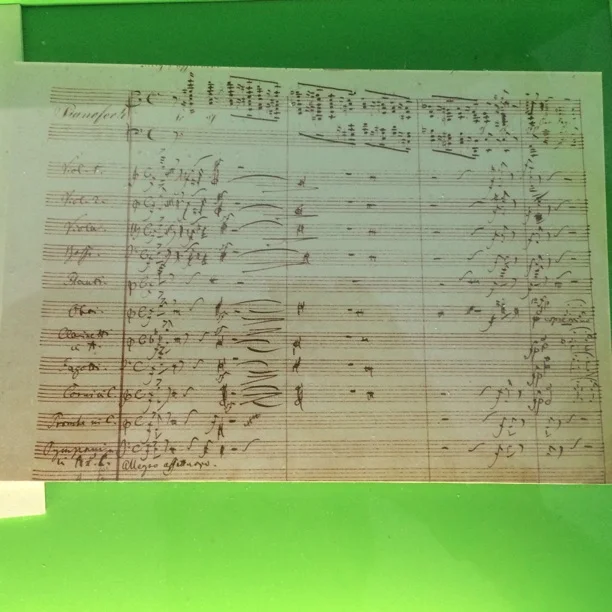 Pianoforte
Viol. 1.
Viol. 2.
Viola.
Bassi.
Flauti.
Oboi.
Clarinetti
in A.
Fagotti.
Corni in E.
Trombe in C.
Tympani in
Allegro affettuoso.